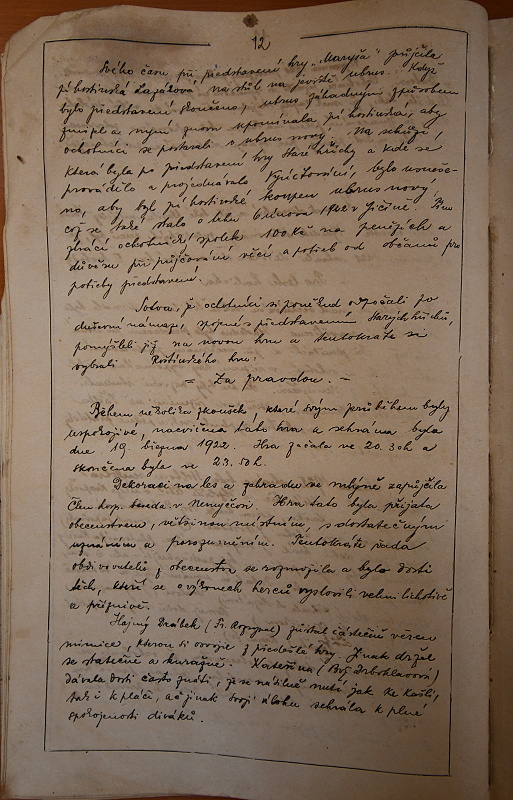 12
Svého času při představení hry „Maryša" půjčila
pí hostinská Lazarová na stůl na jeviště ubrus. Když
bylo představení skončeno, ubrus záhadným způsobem
zmizel a nyní znovu upomínala pí hostinská, aby
ochotníci se postarali o ubrus nový. Na schůzi,
která byla po představení hry Staré hříchy a kde se
provádělo a projednávalo vyúčtování, bylo usneše-
no, aby byl pí hostinské koupen ubrus nový,
což se také stalo a to 6. února 1922 v Jičíně. Tím
ztrácí ochotnický spolek 100 Kč na penězích a
důvěru při půjčování věcí a potřeb od občanů pro
potřeby představení.
Sotva, že ochotníci si poněkud odpočali po
duševní námaze, spojené s představením Starých hříchů,
pomýšleli již na novou hru a tentokráte si
vybrali Roštínského hru:
= Za pravdou. -
Během několika zkoušek, které svým průběhem byly
uspokojivé, nacvičena tato hra a sehrána byla
dne 19. března 1922. Hra začala ve 20.30h a
skončena byla ve 23.50h.
Dekoraci na les a zahradu ve mlýně zapůjčila
Člen. hosp. beseda v Nemyčevsi. Hra tato byla přijata
obecenstvem, většinou místním, s dostatečným
uznáním a porozuměním. Tentokráte řada
obdivovatelů z obecenstva se rozmnožila a bylo dosti
těch, kteří se o výkonech herců vyslovili velmi lichotivě
a příznivě.
Hajný Drábek (Fr. Rozsypal) zůstal částečně věren
mimice, kterou si osvojil z předešlé hry. Jinak držel
se statečně a kurážně. Kateřina (Bož. Drbohlavová)
dávala dosti často znáti, že se násilně nutí jak ke kašli,
tak i k pláči, ač jinak svoji úlohu sehrála k plné
spokojenosti diváků.